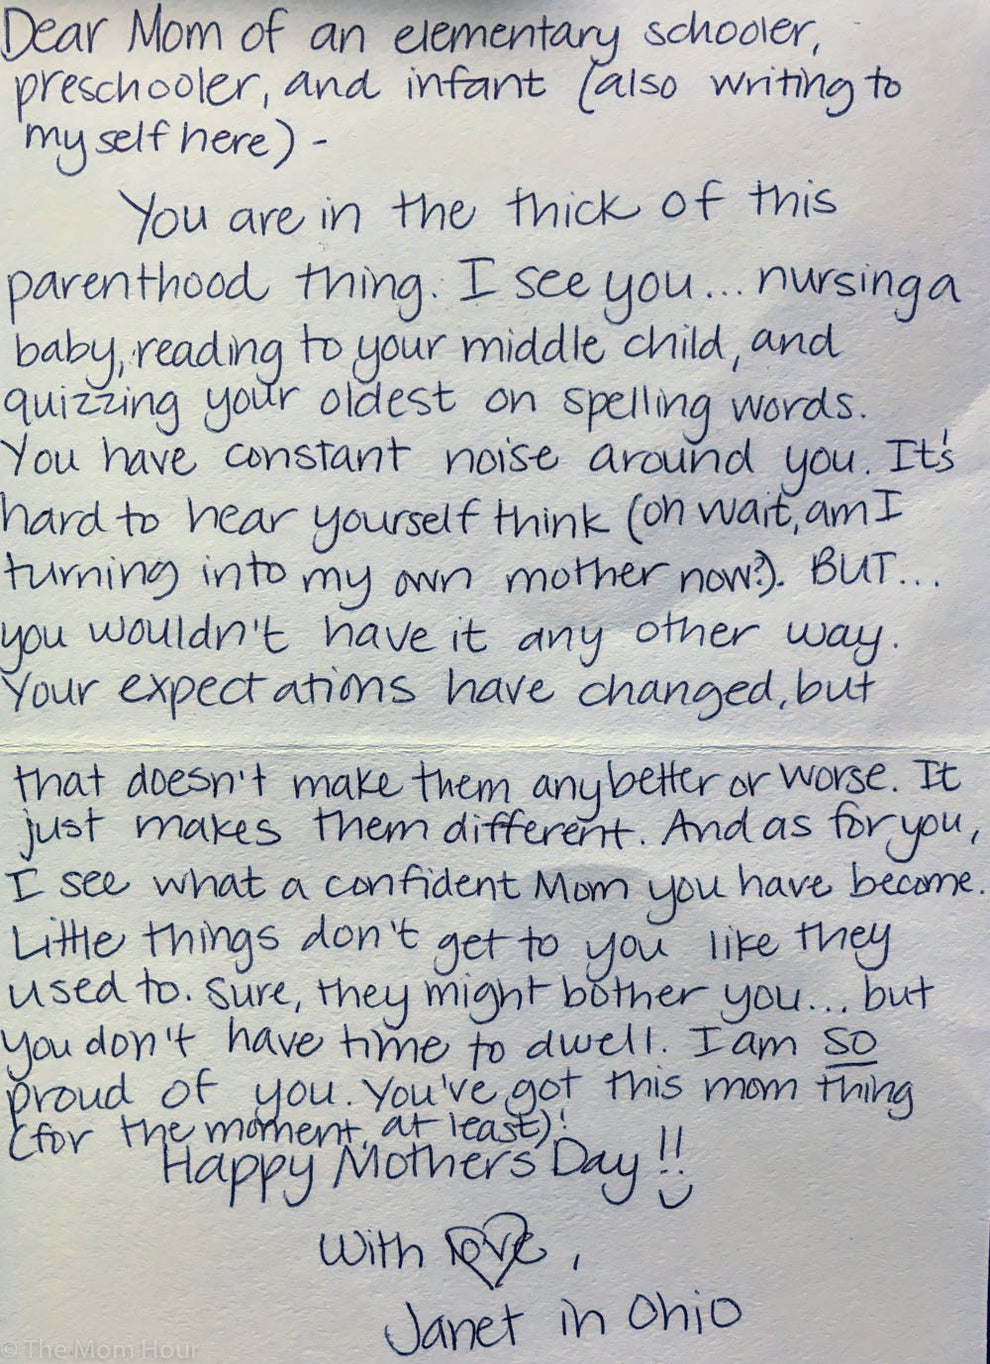 Dear Mom of an elementary schooler,
preschooler, and infant (also writing to
myself here) -
You are in the thick of this
parenthood thing. I see you... nursing a
baby, reading to your middle child, and
quizzing your oldest on spelling words.
You have constant noise around you. It's
hard to hear yourself think (oh wait, am I
turning into my own mother now?). BUT...
you wouldn't have it any other way.
Your expectations have changed, but
that doesn't make them any better or worse. It
just makes them different. And as for you,
I see what a confident Mom you have become.
Little things don't get to you like they
used to. Sure, they might bother you... but
you don't have time to dwell. I am so
proud of you. You've got this mom thing
(for the moment, at least)!
Happy Mothers Day!!
With love,
Janet in Ohio
© The Mom Hour